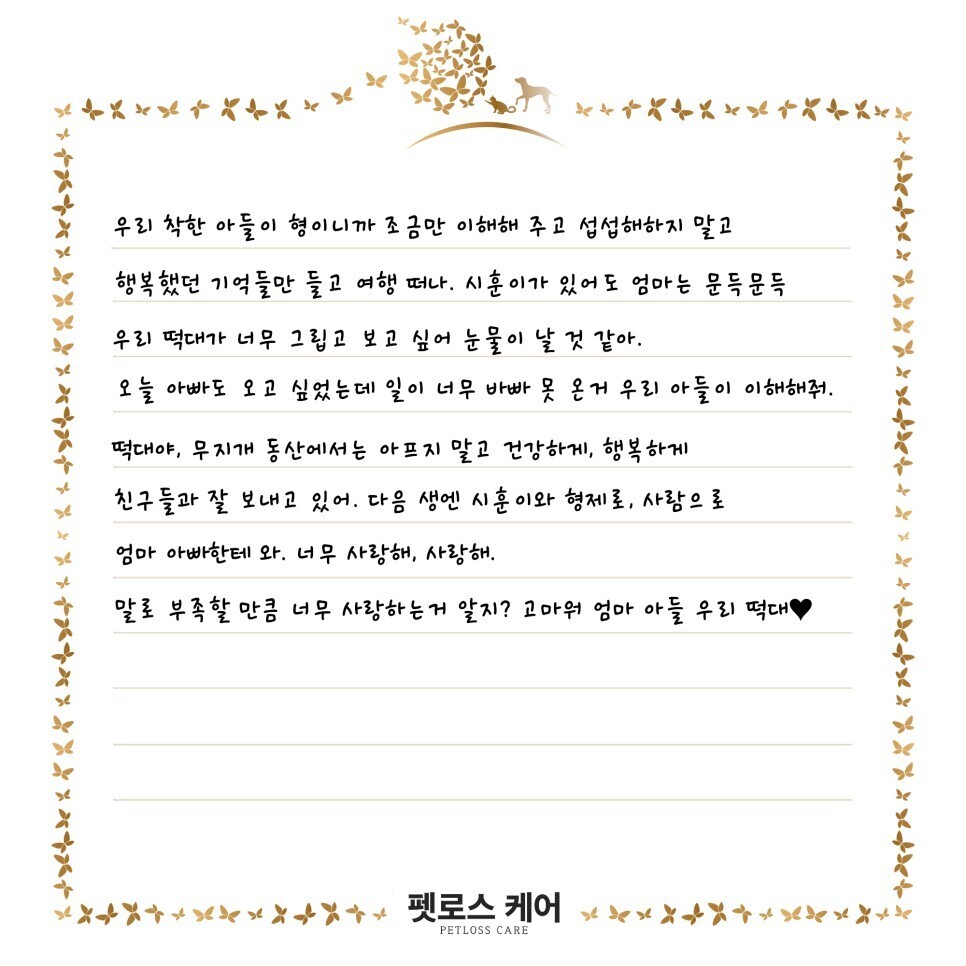 우리 착한 아들이 형이니까 조금만 이해해 주고 섭섭해하지 말고
행복했던 기억들만 들고 여행 떠나. 시훈이가 있어도 엄마는 문득문득
우리 떡대가 너무 그립고 보고 싶어 눈물이 날 것 같아.
오늘 아빠도 오고 싶었는데 일이 너무 바빠 못 온거 우리 아들이 이해해줘.
떡대야, 무지개 동산에서는 아프지 말고 건강하게, 행복하게
친구들과 잘 보내고 있어. 다음 생엔 시훈이와 형제로, 사람으로
엄마 아빠한테 와. 너무 사랑해, 사랑해.
말로 부족할 만큼 너무 사랑하는거 알지? 고마워 엄마 아들 우리 떡대♥
펫로스 케어
PETLOSS CARE